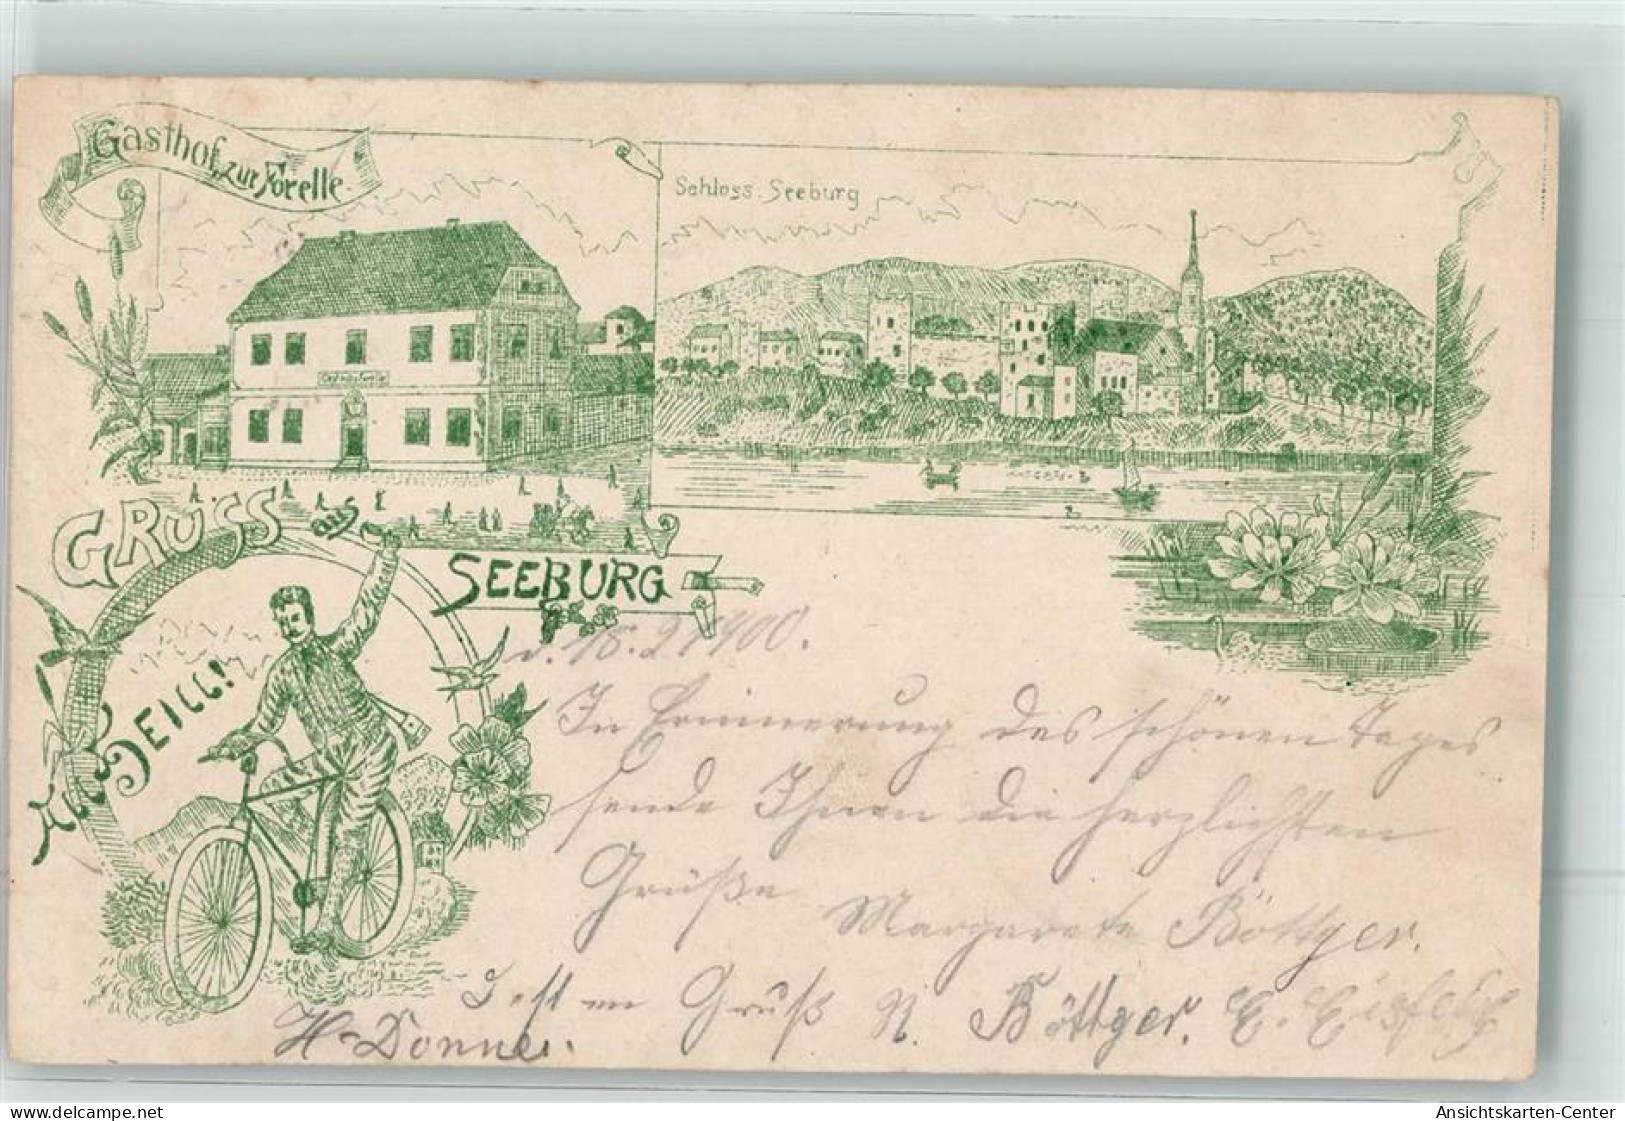 Gasthof zur Forelle.
Schloss Seeburg
Gasthof z. Forelle
GRUSS aus
SEEBURG
All HEILL!
d. 18.2 1900.
In Erinnerung des schönen Tages
sende Ihnen die herzlichsten
Grüße
Margarete Böttger.
Gruß N. Böttger. E. Eisfeld
H. Donner.
akpool.de
Ansichtskarten-Center